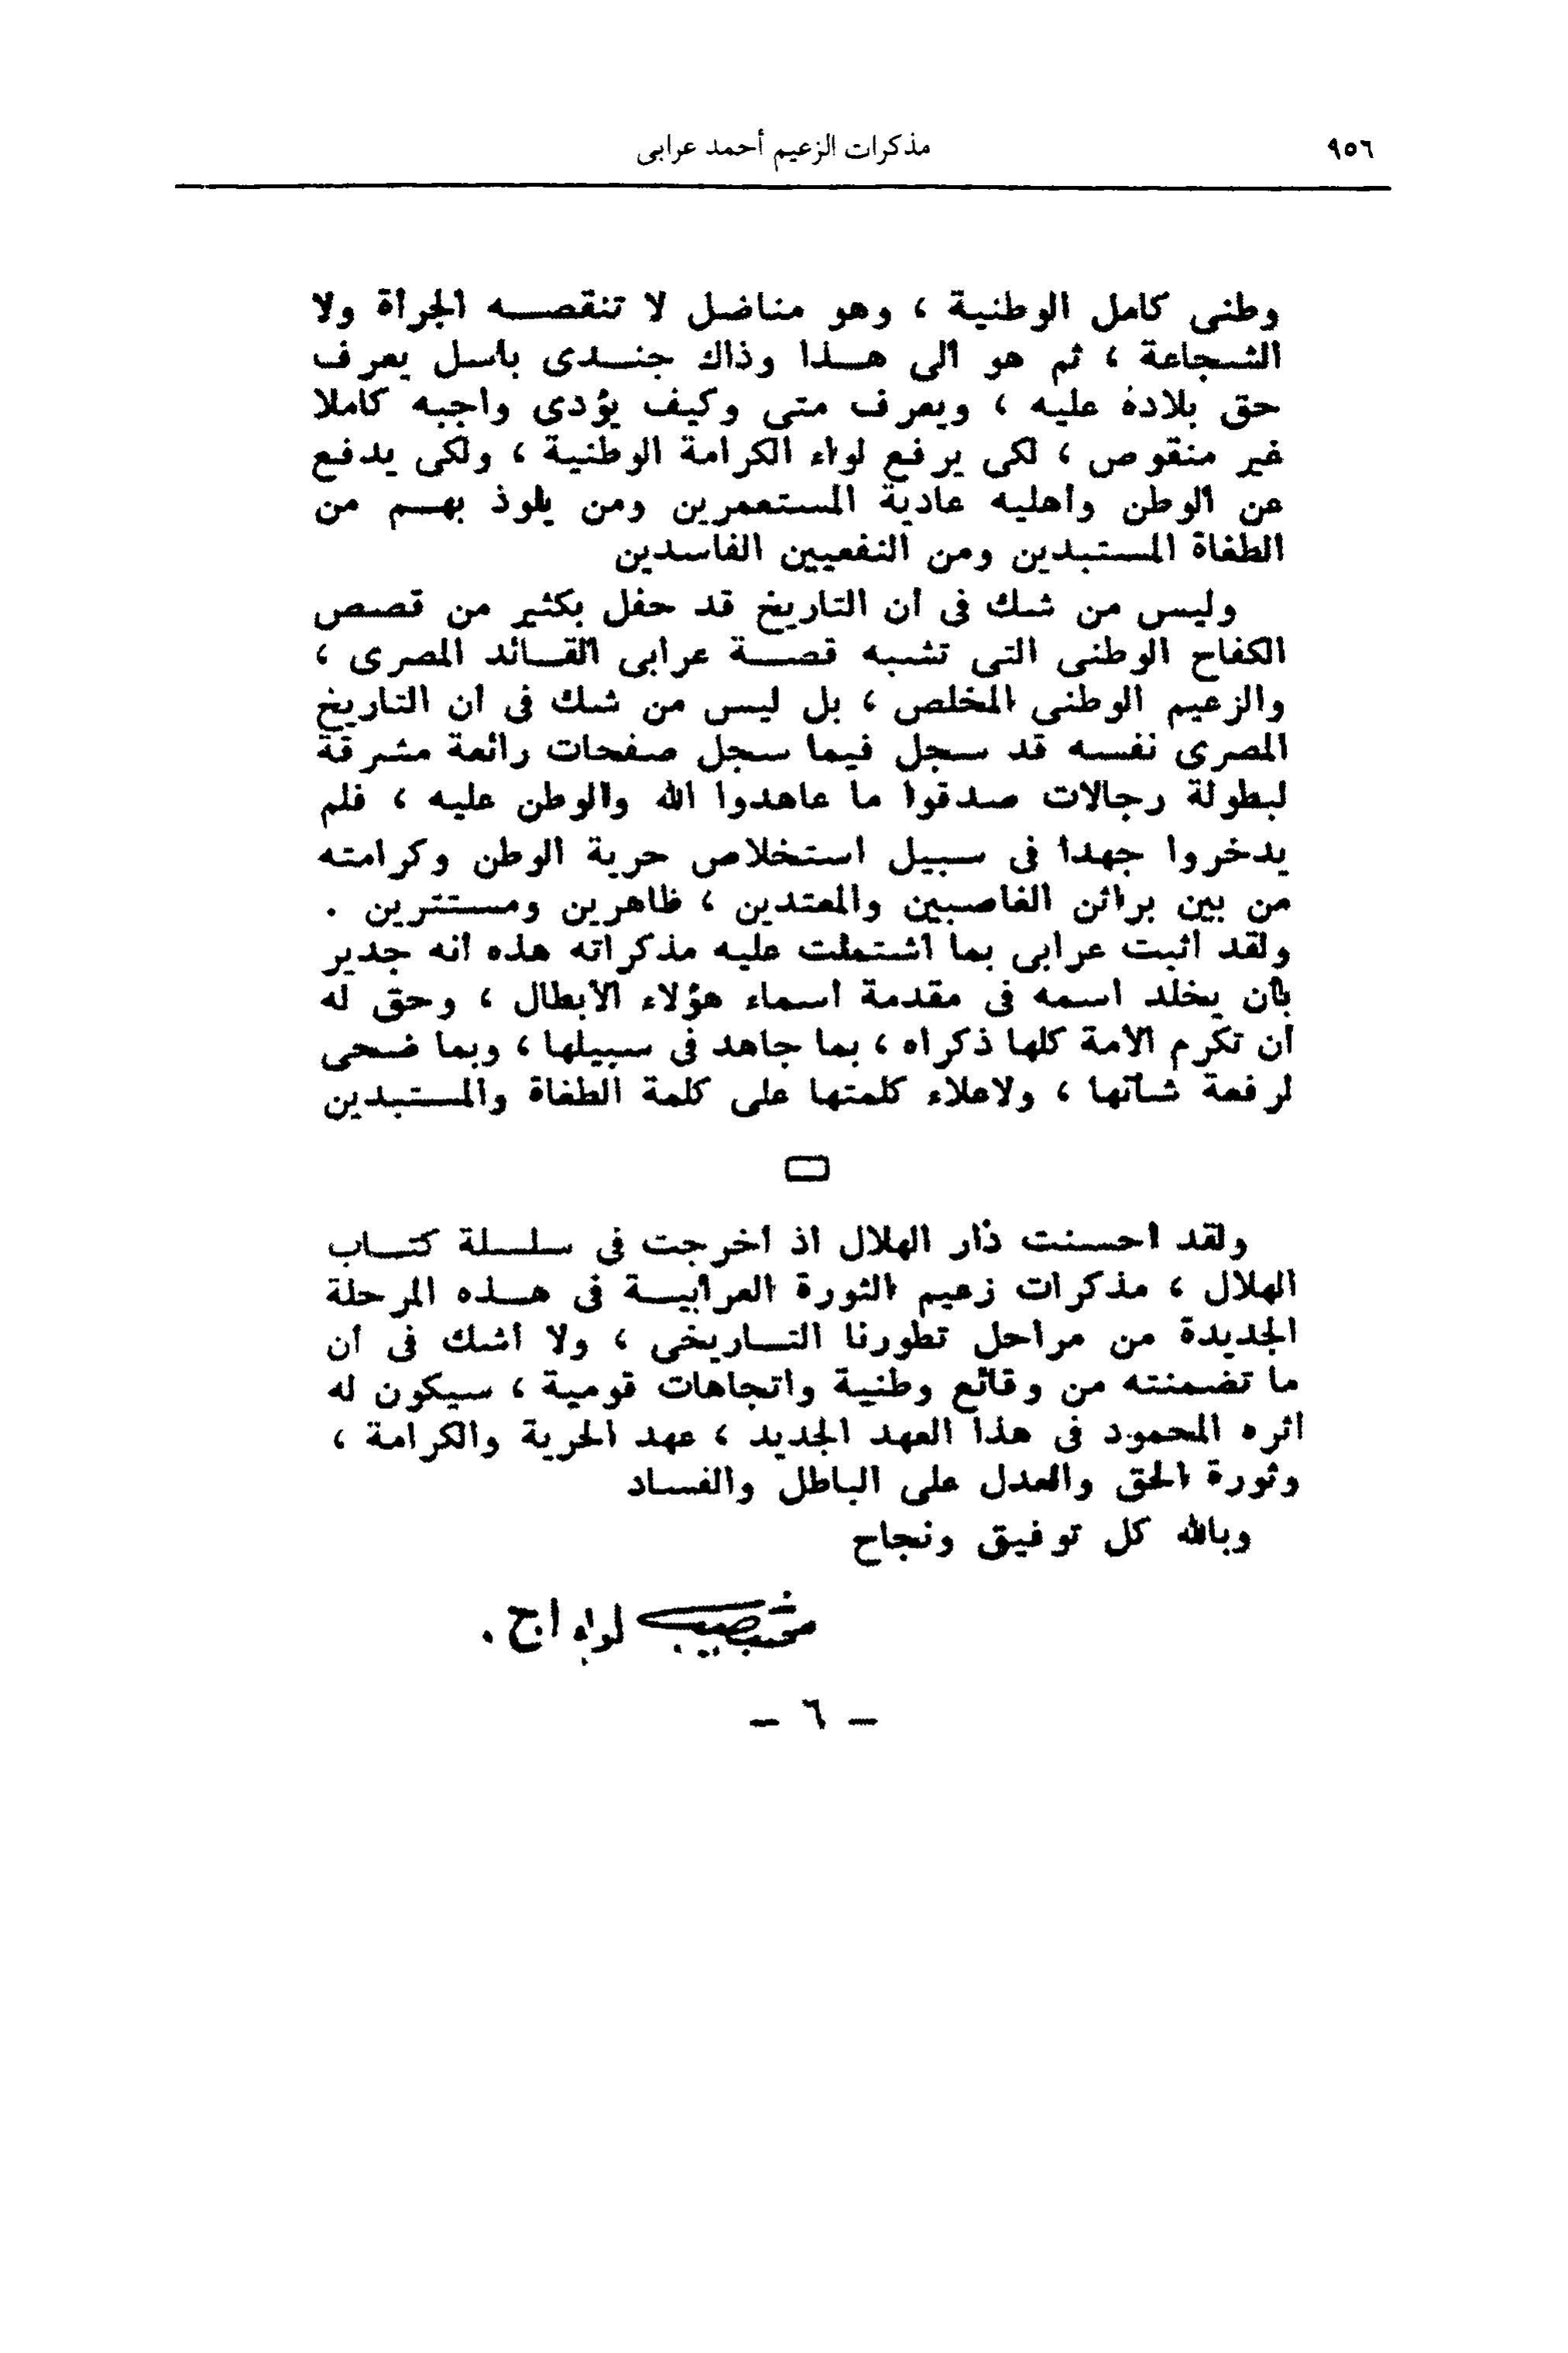 ٩٥٦
مذكرات الزعيم أحمد عرابى
وطنى كامل الوطنية ، وهو مناضل لا تنقصه الجرأة ولا
الشجاعة ، ثم هو الى هذا وذاك جندى باسل يعرف
حق بلاده عليه ، ويعرف متى وكيف يؤدى واجبه كاملا
غير منقوص ، لكى يرفع لواء الكرامة الوطنية ، ولكى يدفع
عن الوطن وأهليه عادية المستعمرين ومن يلوذ بهم من
الطغاة المستبدين ومن النفعيين الفاسدين
وليس من شك فى أن التاريخ قد حفل بكثير من قصص
الكفاح الوطنى التى تشبه قصة عرابى القائد المصرى ،
والزعيم الوطنى المخلص ، بل ليس من شك فى أن التاريخ
المصرى نفسه قد سجل فيما سجل صفحات رائعة مشرقة
لبطولة رجالات صدقوا ما عاهدوا الله والوطن عليه ، فلم
يدخروا جهدا فى سبيل استخلاص حرية الوطن وكرامته
من بين براثن الغاصبين والمعتدين ، ظاهرين ومستترين .
ولقد أثبت عرابى بما اشتملت عليه مذكراته هذه أنه جدير
بأن يخلد اسمه فى مقدمة أسماء هؤلاء الأبطال ، وحق له
أن تكرم الأمة كلها ذكراه ، بما جاهد فى سبيلها ، وبما ضحى
لرفعة شأنها ، ولاعلاء كلمتها على كلمة الطغاة والمستبدين
ولقد أحسنت دار الهلال اذ أخرجت فى سلسلة كتاب
الهلال ، مذكرات زعيم الثورة العرابية فى هذه المرحلة
الجديدة من مراحل تطورنا التاريخى ، ولا أشك فى أن
ما تضمنته من وقائع وطنية واتجاهات قومية ، سيكون له
أثره المحمود فى هذا العهد الجديد ، عهد الحرية والكرامة ،
وثورة الحق والعدل على الباطل والفساد
وبالله كل توفيق ونجاح
لواء ا.ج.
– ٦ –